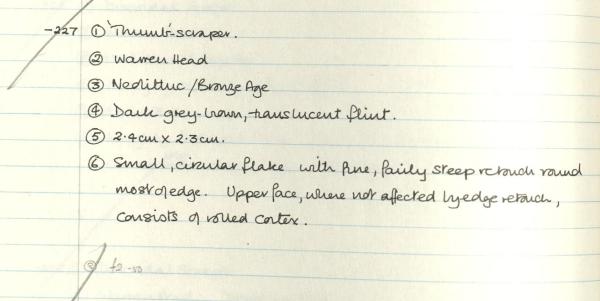 -227 ① 'Thumb'-scraper.
② Warren Head
③ Neolithic/Bronze Age
④ Dark grey-brown, translucent flint.
⑤ 2.4cm x 2.3cm.
⑥ Small, circular flake with fine, fairly steep retouch round
most of edge. Upper face, where not affected by edge retouch,
consists of rolled cortex.
£2-50